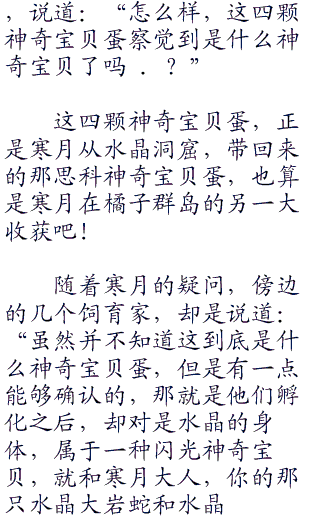 ，说道：“怎么样，这四颗
神奇宝贝蛋察觉到是什么神
奇宝贝了吗 ．？”
这四颗神奇宝贝蛋，正
是寒月从水晶洞窟，带回来
的那思科神奇宝贝蛋，也算
是寒月在橘子群岛的另一大
收获吧！
随着寒月的疑问，傍边
的几个饲育家，却是说道：
“虽然并不知道这到底是什
么神奇宝贝蛋，但是有一点
能够确认的，那就是他们孵
化之后，却对是水晶的身
体，属于一种闪光神奇宝
贝，就和寒月大人，你的那
只水晶大岩蛇和水晶